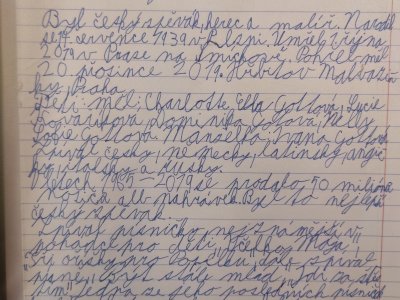 Byl český zpěvák, herec a malíř. Narodil
se 14. července 1939 v Plzni. Umřel 1. října
2019 v Praze na Smíchově. Pohřeb měl
20 prosince 2019. Hřbitov Malvazin
ky, Praha.
Děti měl: Charlotte Ella Gottová, Lucie
Kovaříková, Dominika Gottová, Nelly
Sofie Gottová. Manželka: Ivana Gottová.
Zpíval česky, německy, latinsky, angli
cky, italsky a rusky.
V letech 1965 - 2019 se prodalo 50 miliónů
alb nahrávek. Byl to nejlepší
český zpěvák.
Zpíval písničky nejznámější v
pohádce pro děti „Včelka Mája",
„Tři oříšky pro Popelku", dále zpíval
„být stále mlád", „Jdi za štěs
tím". Jedna ze jeho posledních písniček